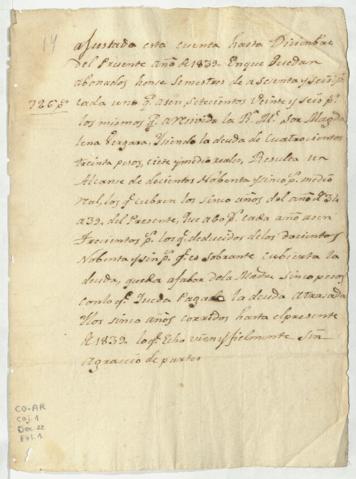 14
ajustada esta cuenta hasta Diciembre
del Presente año de 1839. En que quedan
abonados honse Semestres de a sesenta y seis p.s
726 p.s cada uno q.e asen setecientos Veinte y seis p.s
los mismos q.e a recivido la R. M. Sor Magda
lena Vergara, y siendo la deuda de Cuatrocientos
treinta pesos, ciete y medio reales, Resulta un
Alcanse de docientos Nobenta y sinco p.s medio
real, los q.e cubren los sinco años del año de 34
a 39, del Presente, que a 60 p.s cada año asen
Trecientos p.s los q.e deducidos de los docientos
Nobenta y sinco p.s q.e es Sobrante cubierta la
deuda, queda a fabor de la Madre Sinco pesos
con lo q.e queda Pagar la deuda atrasada
y los sinco años corridos hasta el presente
de 1839. lo q.e Echo vien y fielmente Sin
Agravio de partes
CO-AR
Caj. 1
Doc. 22
Fol. 1